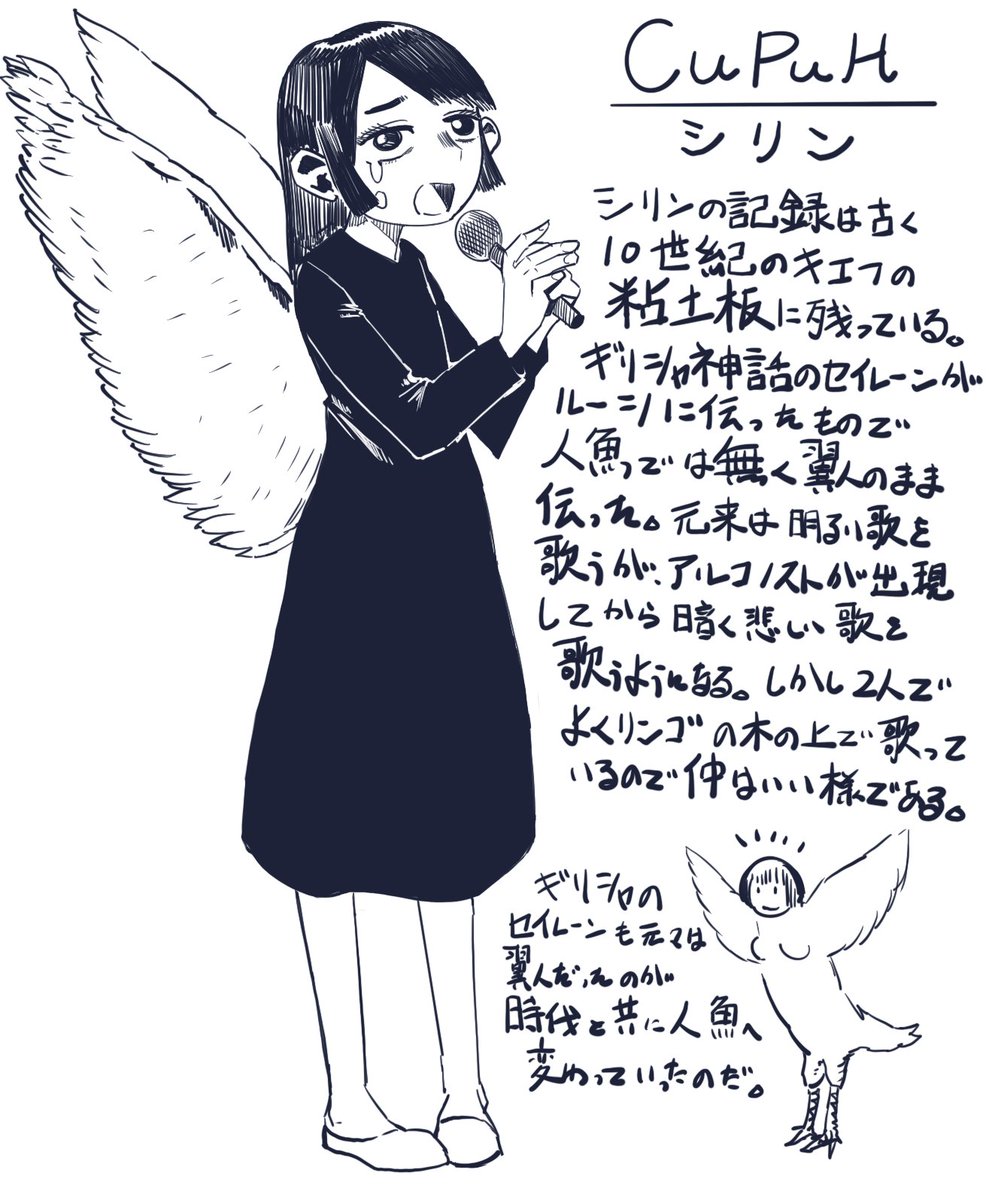 СиРиН
シリン
シリンの記録は古く
10世紀のキエフの
粘土板に残っている。
ギリシャ神話のセイレーンが
ルーシに伝ったもので
人魚っでは無く翼人のまま
伝った。元来は明るい歌を
歌うが、アルコノストが出現
してから暗く悲しい歌を
歌うようになる。しかし2人で
よくリンゴの木の上で歌って
いるので仲はいい様である。
ギリシャの
セイレーンも元々は
翼人だったのが
時代と共に人魚へ
変わっていったのだ。